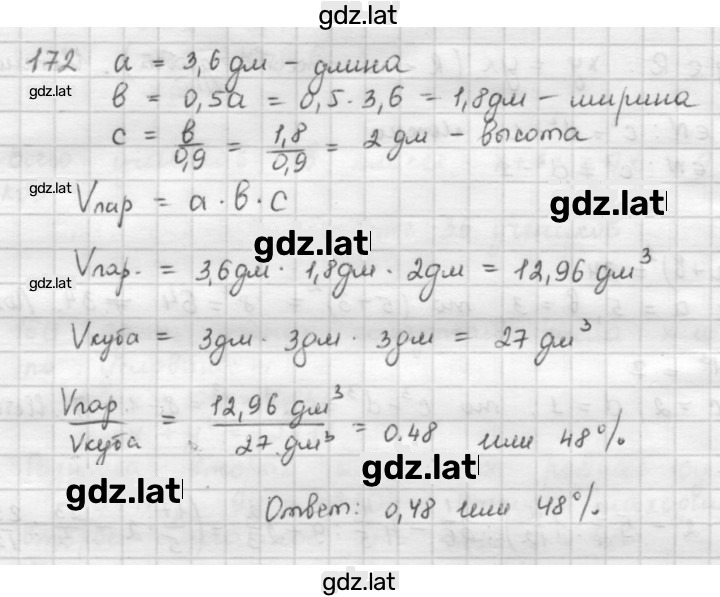 gdz.lat
172 a = 3,6 дм – длина
gdz.lat
в = 0,5а = 0,5 · 3,6 = 1,8дм – ширина
с = в/0,9 = 1,8/0,9 = 2 дм – высота
gdz.lat
Vпар = а · в · с
gdz.lat
gdz.lat
Vпар. = 3,6дм · 1,8дм · 2дм = 12,96 дм³
gdz.lat
Vкуба = 3дм · 3дм · 3дм = 27 дм³
Vпар/Vкуба = 12,96 дм³/27 дм³ = 0.48 или 48%
gdz.lat
gdz.lat
Ответ: 0,48 или 48%
gdz.lat